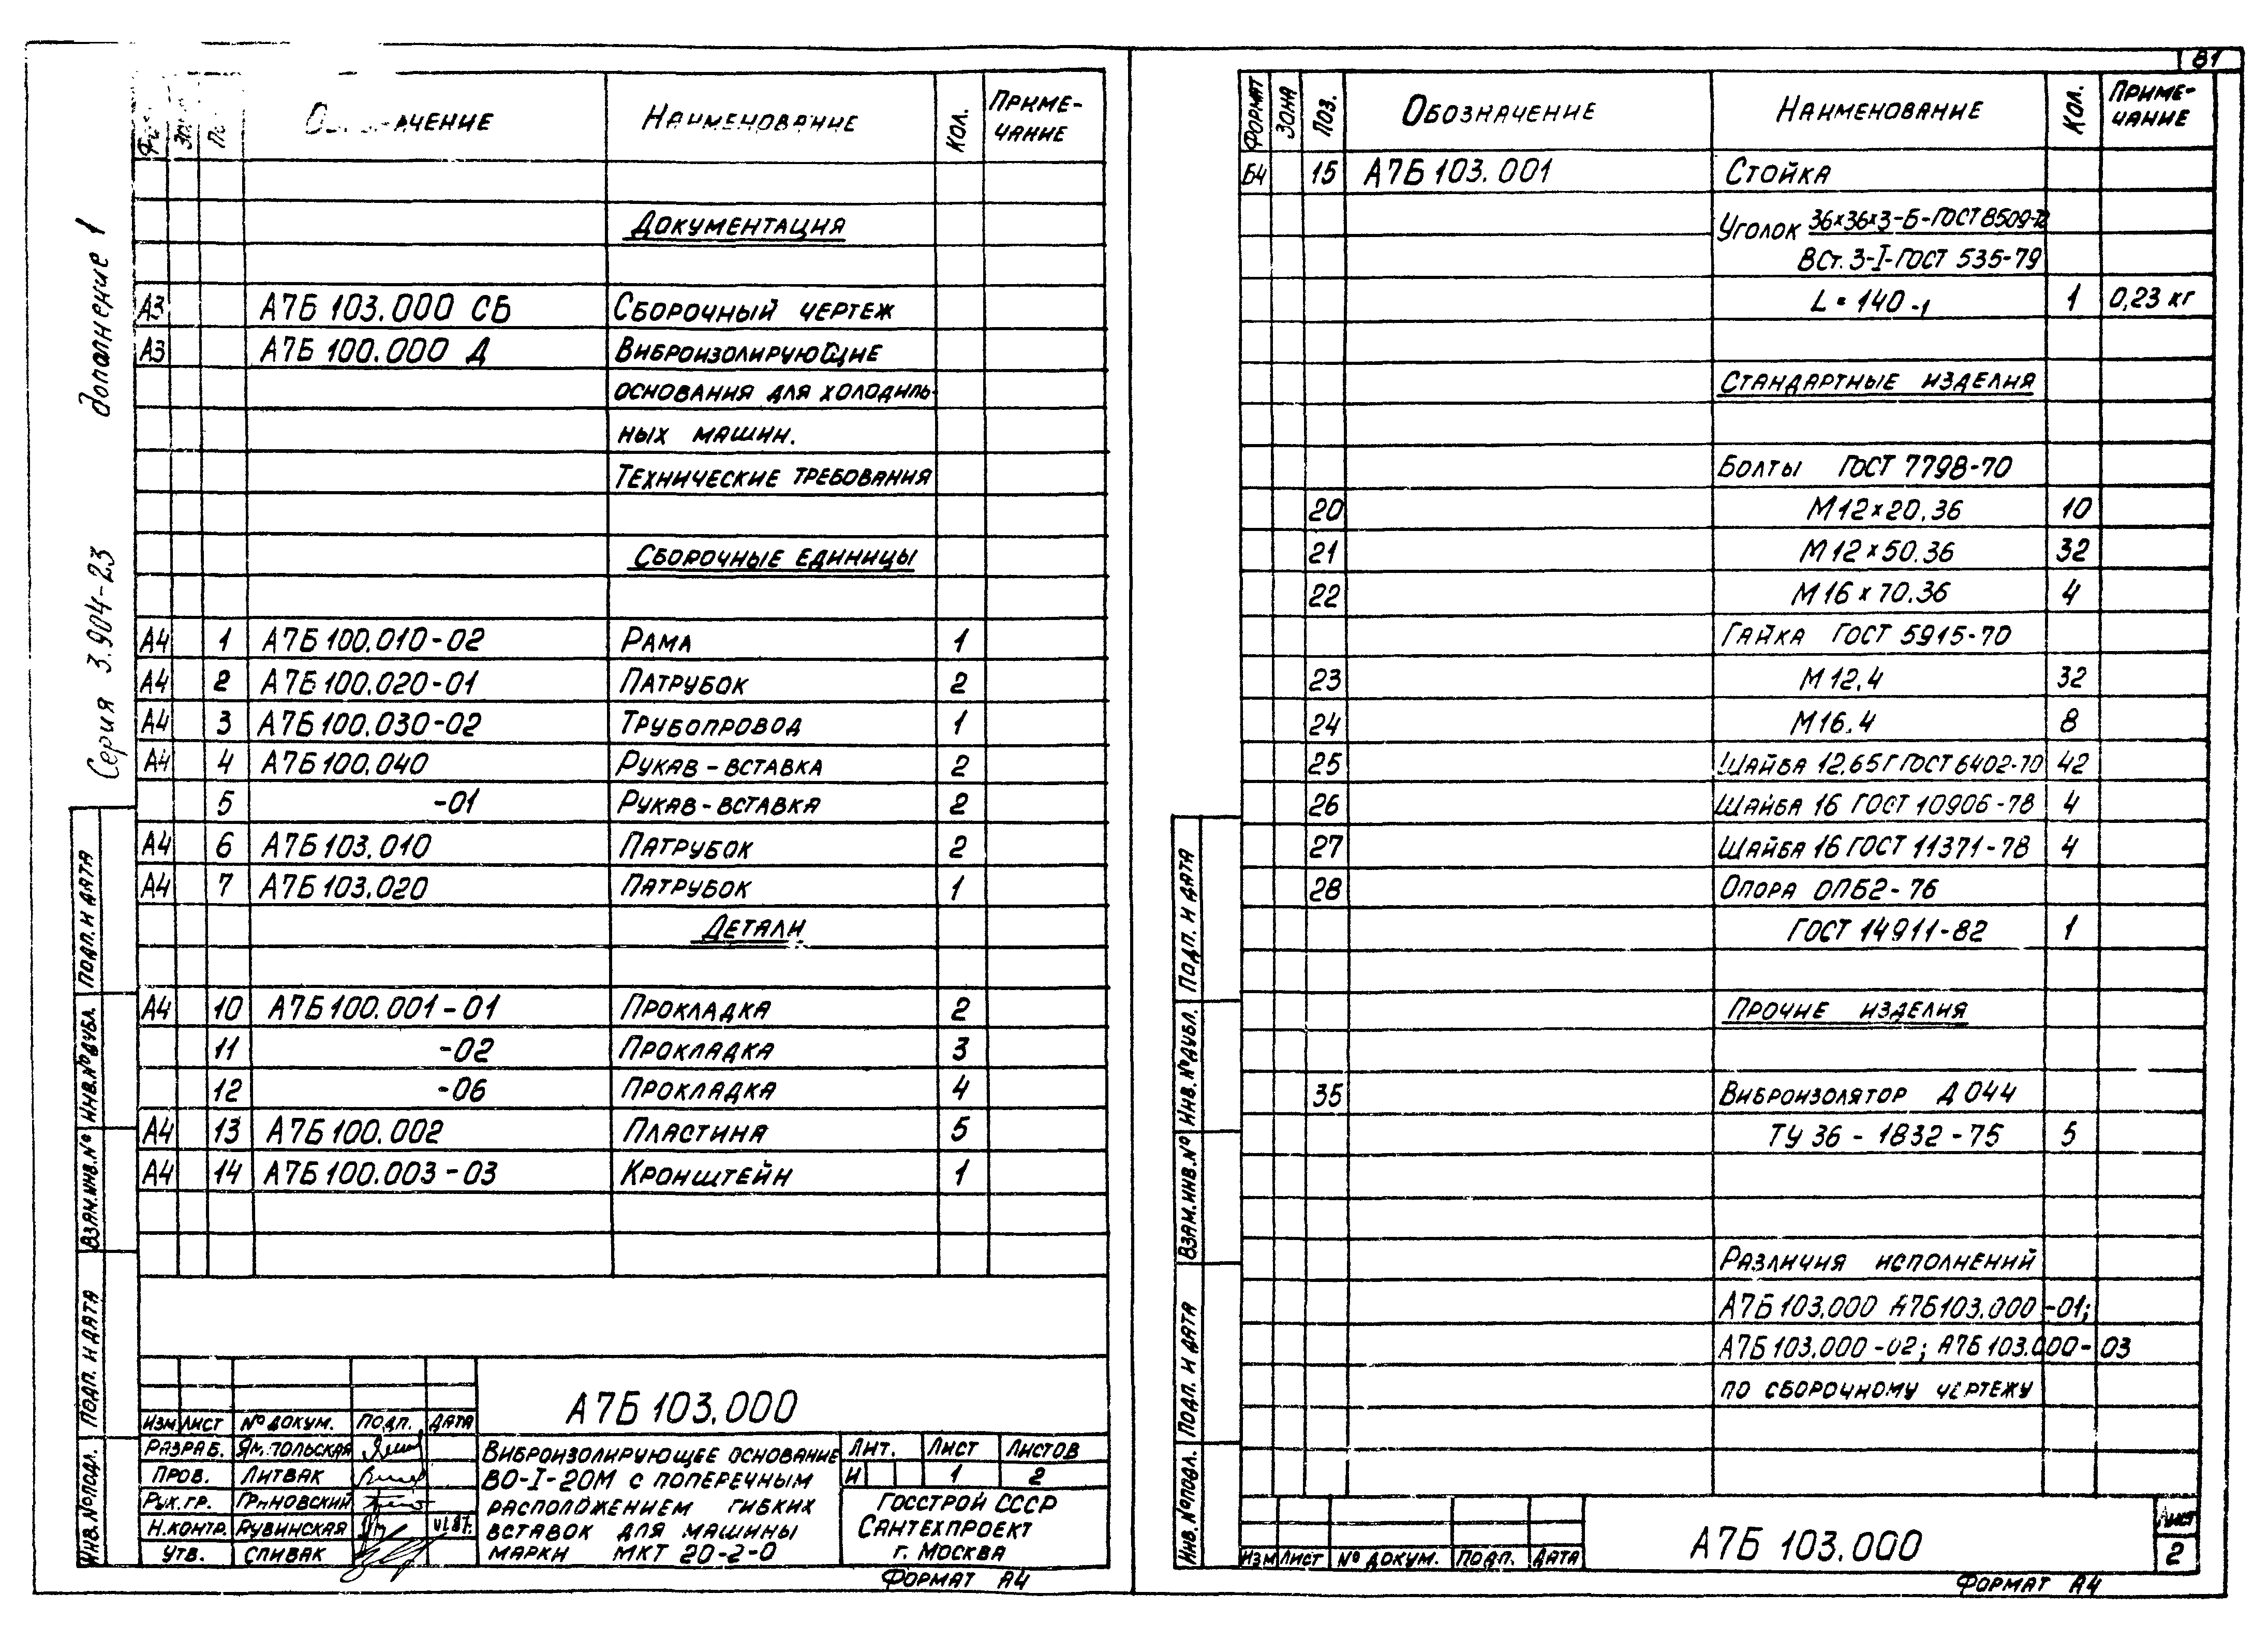 81
дополнение 1
Серия 3.904-23
Обозначение Наименование Кол. Приме-
чание
Документация
А3 А7Б 103.000 СБ Сборочный чертеж
А3 А7Б 100.000 Д Виброизолирующие
основания для холодиль-
ных машин.
Технические требования
Сборочные единицы
А4 1 А7Б 100.010-02 Рама 1
А4 2 А7Б 100.020-01 Патрубок 2
А4 3 А7Б 100.030-02 Трубопровод 1
А4 4 А7Б 100.040 Рукав-вставка 2
5 -01 Рукав-вставка 2
А4 6 А7Б 103.010 Патрубок 2
А4 7 А7Б 103.020 Патрубок 1
Детали
А4 10 А7Б 100.001-01 Прокладка 2
11 -02 Прокладка 3
12 -06 Прокладка 4
А4 13 А7Б 100.002 Пластина 5
А4 14 А7Б 100.003-03 Кронштейн 1
Подп. и дата
Инв.№ дубл.
Взам.инв.№
Подп. и дата
Инв.№ подл.
А7Б 103.000
Изм Лист № докум. Подп. Дата
Разраб. Ямпольская
Пров. Литвак
Рук.гр. Грановский
Н.контр. Рувинская VI.87г.
Утв. Спивак
Виброизолирующее основание
ВО-I-20М с поперечным
расположением гибких
вставок для машины
марки МКТ 20-2-0
Лит. Лист Листов
И 1 2
Госстрой СССР
Сантехпроект
г. Москва
Формат А4
Формат Зона Поз. Обозначение Наименование Кол. Приме-
чание
Б4 15 А7Б 103.001 Стойка
Уголок 36×36×3-Б-ГОСТ 8509-72
ВСт.3-I-ГОСТ 535-79
L=140-1 1 0,23 кг
Стандартные изделия
Болты ГОСТ 7798-70
20 М12×20.36 10
21 М12×50.36 32
22 М16×70.36 4
Гайка ГОСТ 5915-70
23 М12.4 32
24 М16.4 8
25 Шайба 12.65Г ГОСТ 6402-70 42
26 Шайба 16 ГОСТ 10906-78 4
27 Шайба 16 ГОСТ 11371-78 4
28 Опора ОПБ2-76
ГОСТ 14911-82 1
Прочие изделия
35 Виброизолятор Д 044
ТУ 36-1832-75 5
Различия исполнений
А7Б 103.000 А7Б 103.000-01;
А7Б 103.000-02; А7Б 103.000-03
по сборочному чертежу
Подп. и дата
Инв.№ дубл.
Взам.инв.№
Подп. и дата
Инв.№ подл.
Изм Лист № докум. Подп. Дата
А7Б 103.000
Лист
2
Формат А4